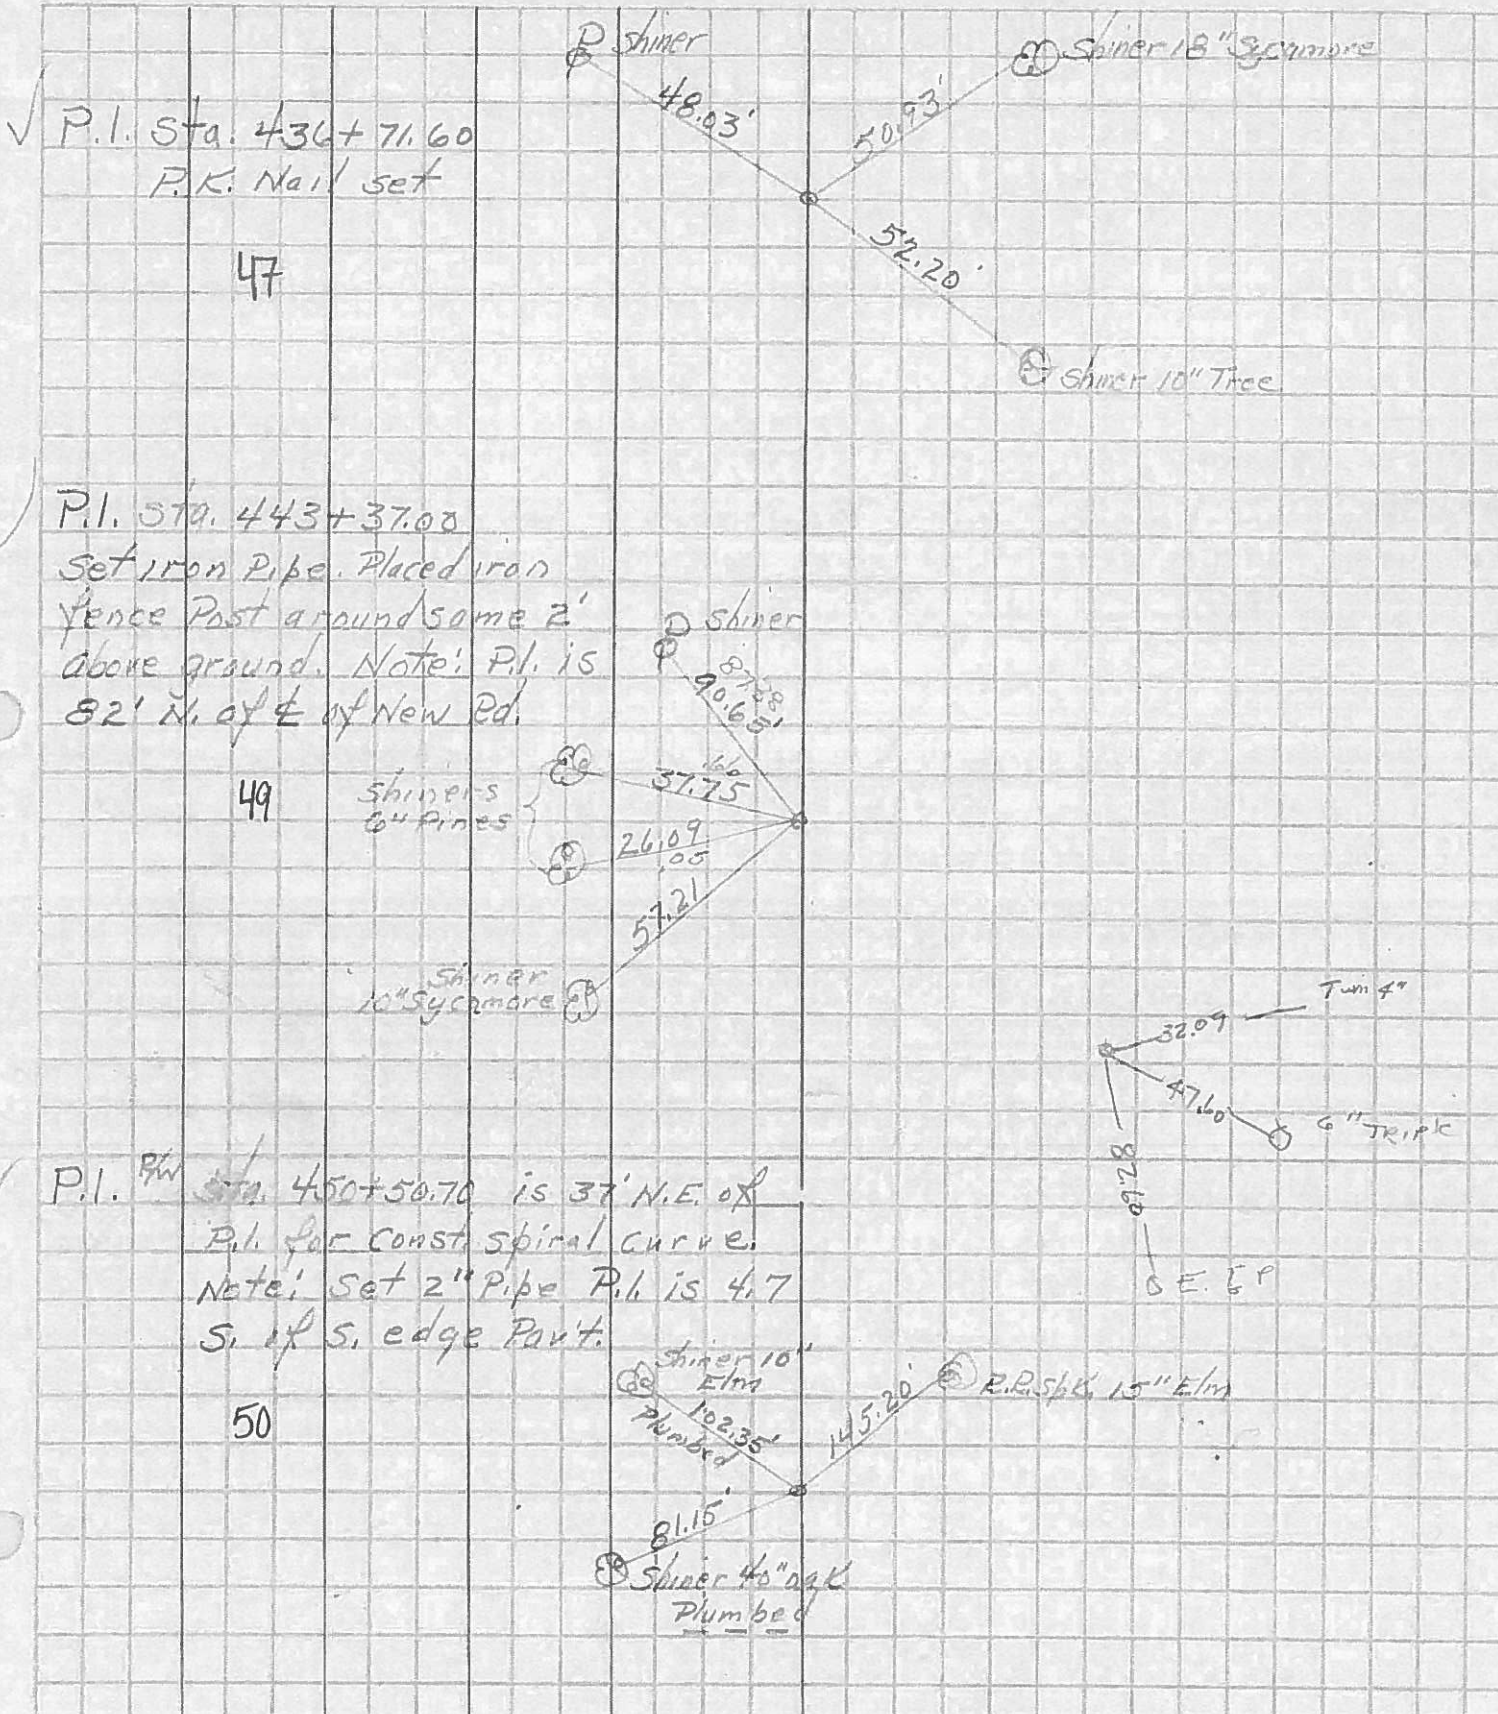 P Shiner
Shiner 18" Sycamore
48.03'
50.93'
P.I. Sta. 436+71.60
P.K. Nail set
52.20'
47
Shiner 10" Tree
P.I. Sta. 443+37.00
Set iron Pipe. Placed iron
fence Post around same 2'
above ground. Note: P.I. is
82' N. of ℄ of New Rd.
P Shiner
90.65'
49
Shiners
6" Pines
.60
37.75
26.09
.05
57.21
Shiner
10" Sycamore
Twin 4"
32.09
47.60
6" Triple
P.I. R/W Sta. 450+50.70 is 37' N.E. of
P.I. for Const. spiral curve.
Note: Set 2" Pipe P.I. is 4.7
S. of S. edge Pav't.
50
Shiner 10"
Elm
102.35'
Plumbed
145.20'
R.R. Spk. 15" Elm
81.15'
Shiner 40" oak
Plumbed